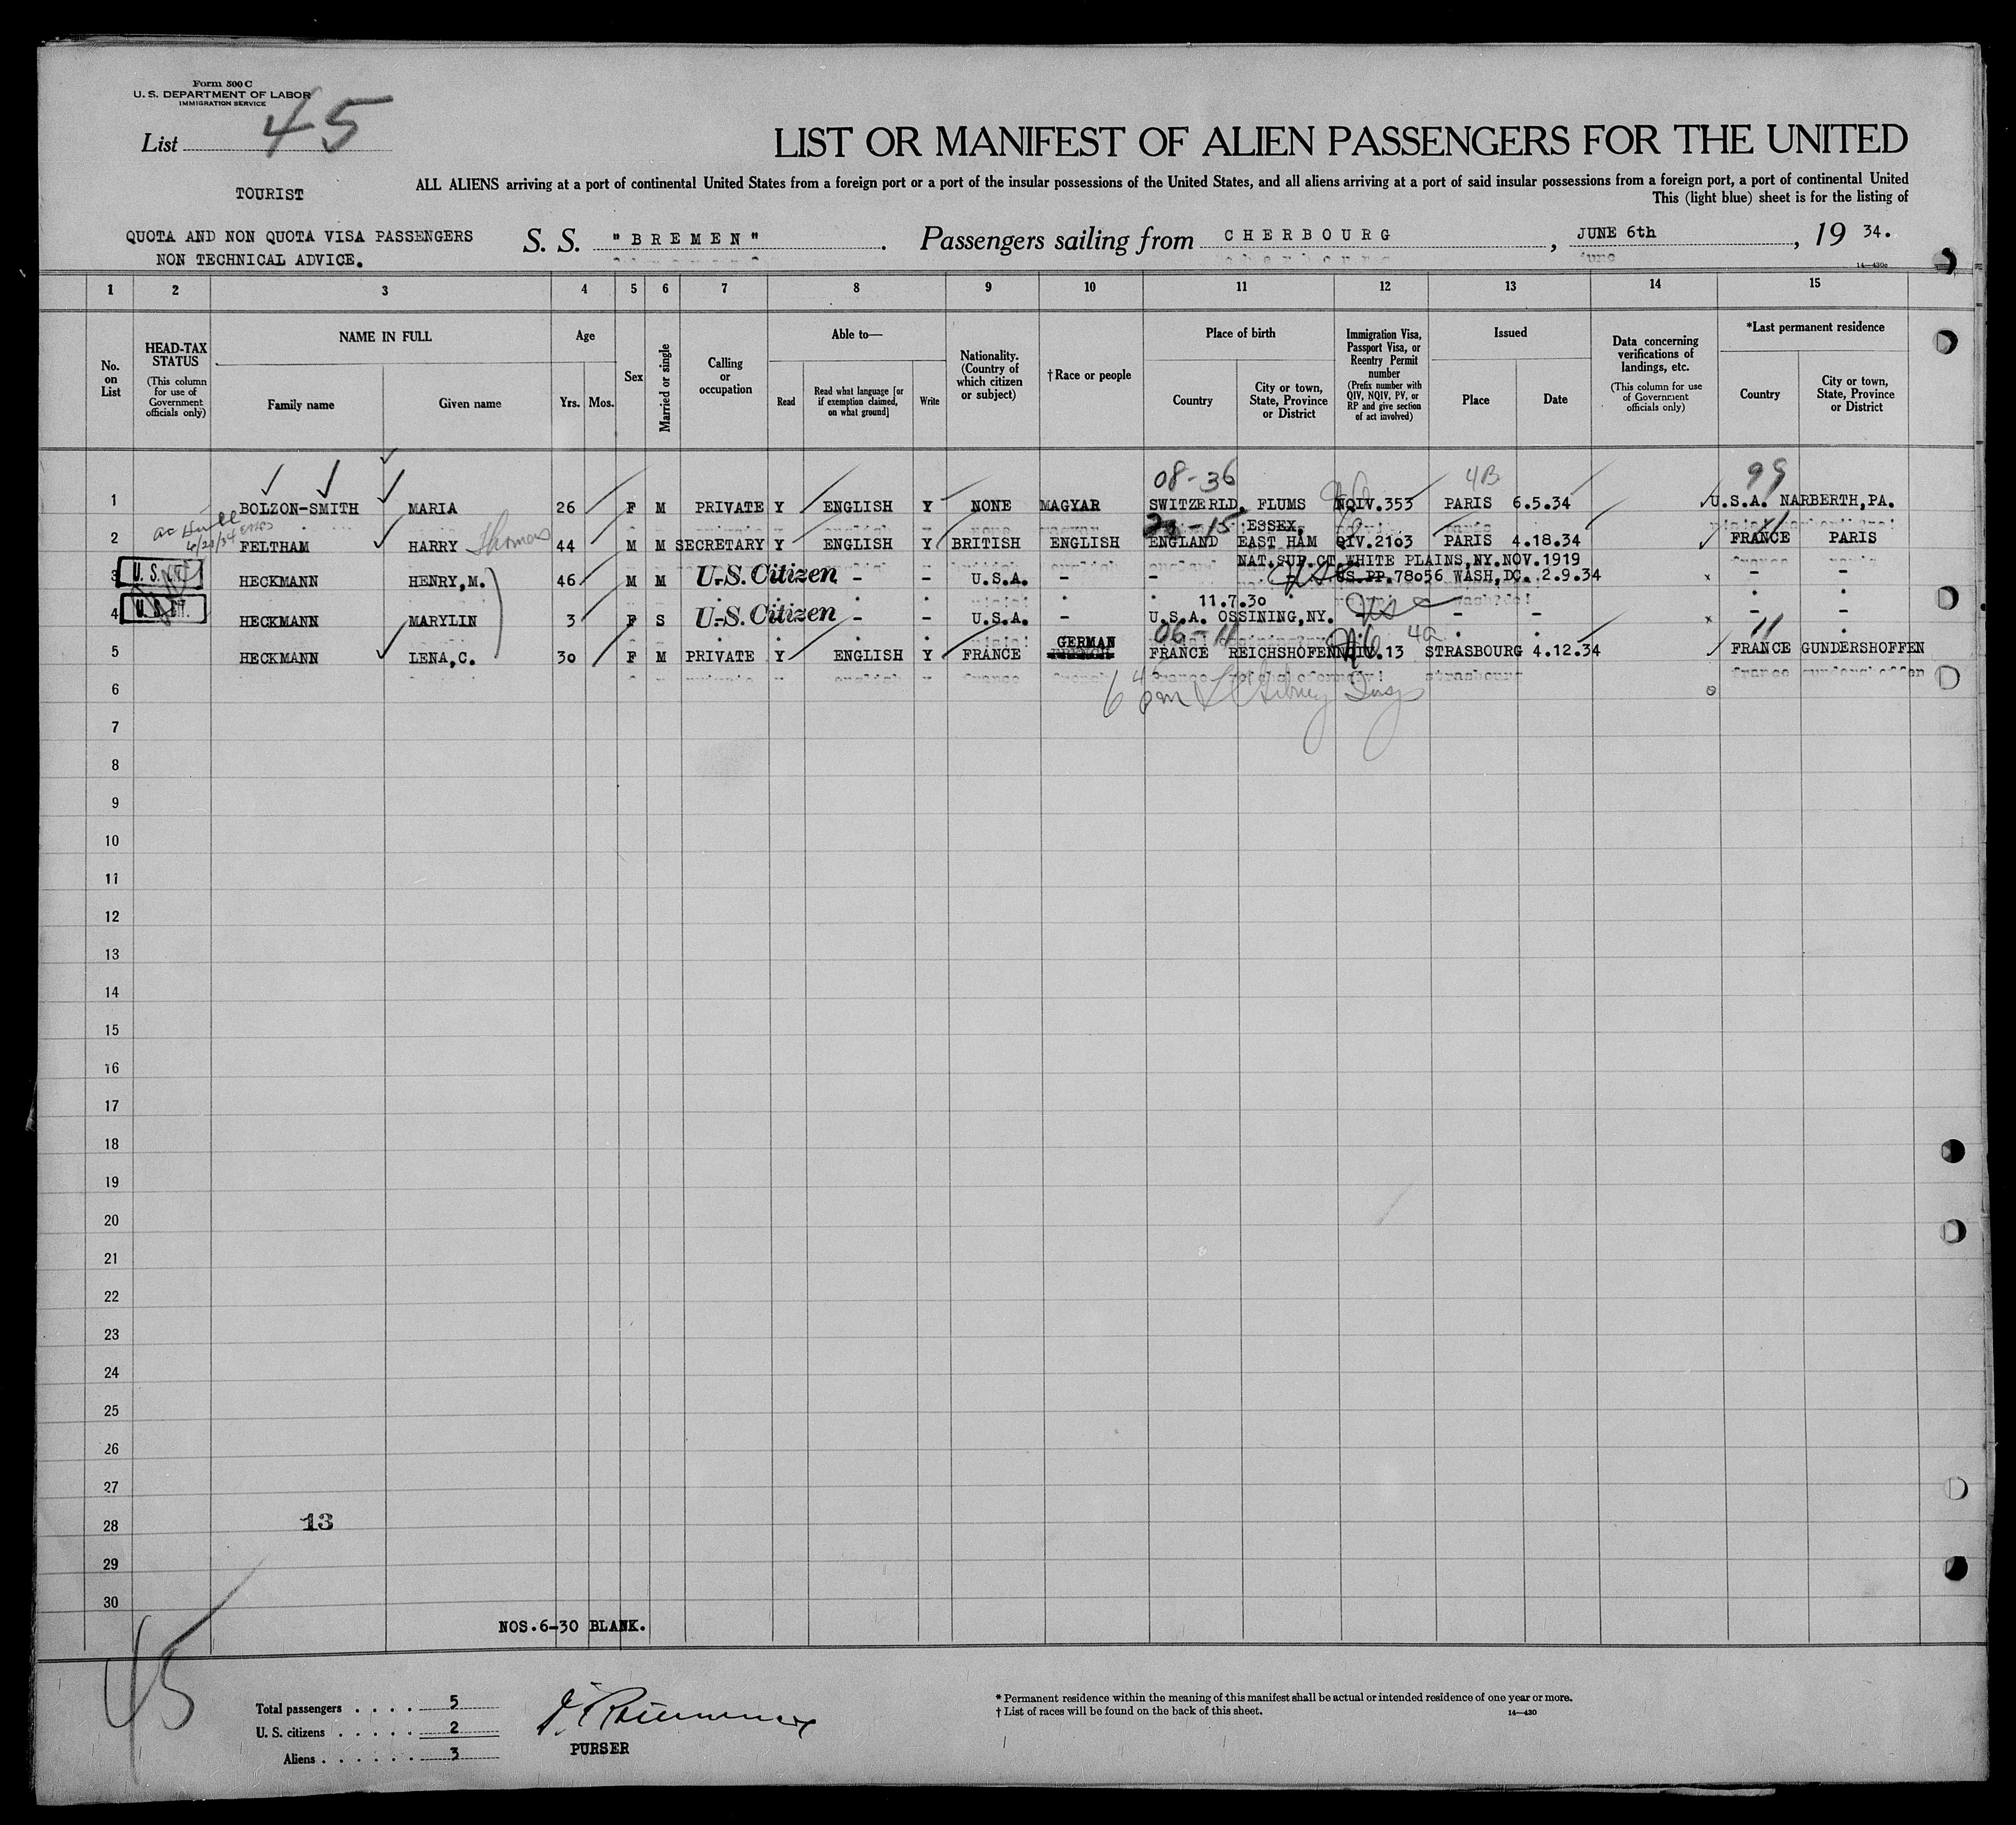 Form 500 C
U. S. DEPARTMENT OF LABOR
IMMIGRATION SERVICE
List 45
LIST OR MANIFEST OF ALIEN PASSENGERS FOR THE UNITED
TOURIST
ALL ALIENS arriving at a port of continental United States from a foreign port or a port of the insular possessions of the United States, and all aliens arriving at a port of said insular possessions from a foreign port, a port of continental United
This (light blue) sheet is for the listing of
QUOTA AND NON QUOTA VISA PASSENGERS
NON TECHNICAL ADVICE.
S. S. "BREMEN". Passengers sailing from CHERBOURG, JUNE 6th, 19 34.
14—430c
1 2 3 4 5 6 7 8 9 10 11 12 13 14 15
No. on List
HEAD-TAX STATUS (This column for use of Government officials only)
NAME IN FULL
Family name Given name
Age
Yrs. Mos.
Sex
Married or single
Calling or occupation
Able to—
Read
Read what language [or if exemption claimed, on what ground]
Write
Nationality. (Country of which citizen or subject)
† Race or people
Place of birth
Country
City or town, State, Province or District
Immigration Visa, Passport Visa, or Reentry Permit number (Prefix number with QIV, NQIV, PV, or RP and give section of act involved)
Issued
Place Date
Data concerning verifications of landings, etc. (This column for use of Government officials only)
*Last permanent residence
Country
City or town, State, Province or District
08-36 4B 99
1 BOLZON-SMITH MARIA 26 F M PRIVATE Y ENGLISH Y NONE MAGYAR SWITZERLD. FLUMS NQIV.353 PARIS 6.5.34 U.S.A. NARBERTH,PA.
ESSEX,
2 FELTHAM HARRY Thomas 44 M M SECRETARY Y ENGLISH Y BRITISH ENGLISH ENGLAND EAST HAM QIV.2103 PARIS 4.18.34 FRANCE PARIS
NAT.SUP.CT.WHITE PLAINS,NY.NOV.1919
3 HECKMANN HENRY,M. 46 M M U.S. Citizen - - U.S.A. - - US.PP.78056 WASH,DC. 2.9.34 - -
11.7.30
4 HECKMANN MARYLIN 3 F S U.S. Citizen - - U.S.A. - U.S.A. OSSINING,NY. - - - - -
GERMAN 06-11 11
5 HECKMANN LENA,C. 30 F M PRIVATE Y ENGLISH Y FRANCE FRANCE REICHSHOFEN NQIV.13 STRASBOURG 4.12.34 FRANCE GUNDERSHOFFEN
6
7
8
9
10
11
12
13
14
15
16
17
18
19
20
21
22
23
24
25
26
27
28 13
29
30
NOS.6-30 BLANK.
45
Total passengers . . . . 5
U. S. citizens . . . . . 2
Aliens . . . . . . 3
PURSER
* Permanent residence within the meaning of this manifest shall be actual or intended residence of one year or more.
† List of races will be found on the back of this sheet.
14—430